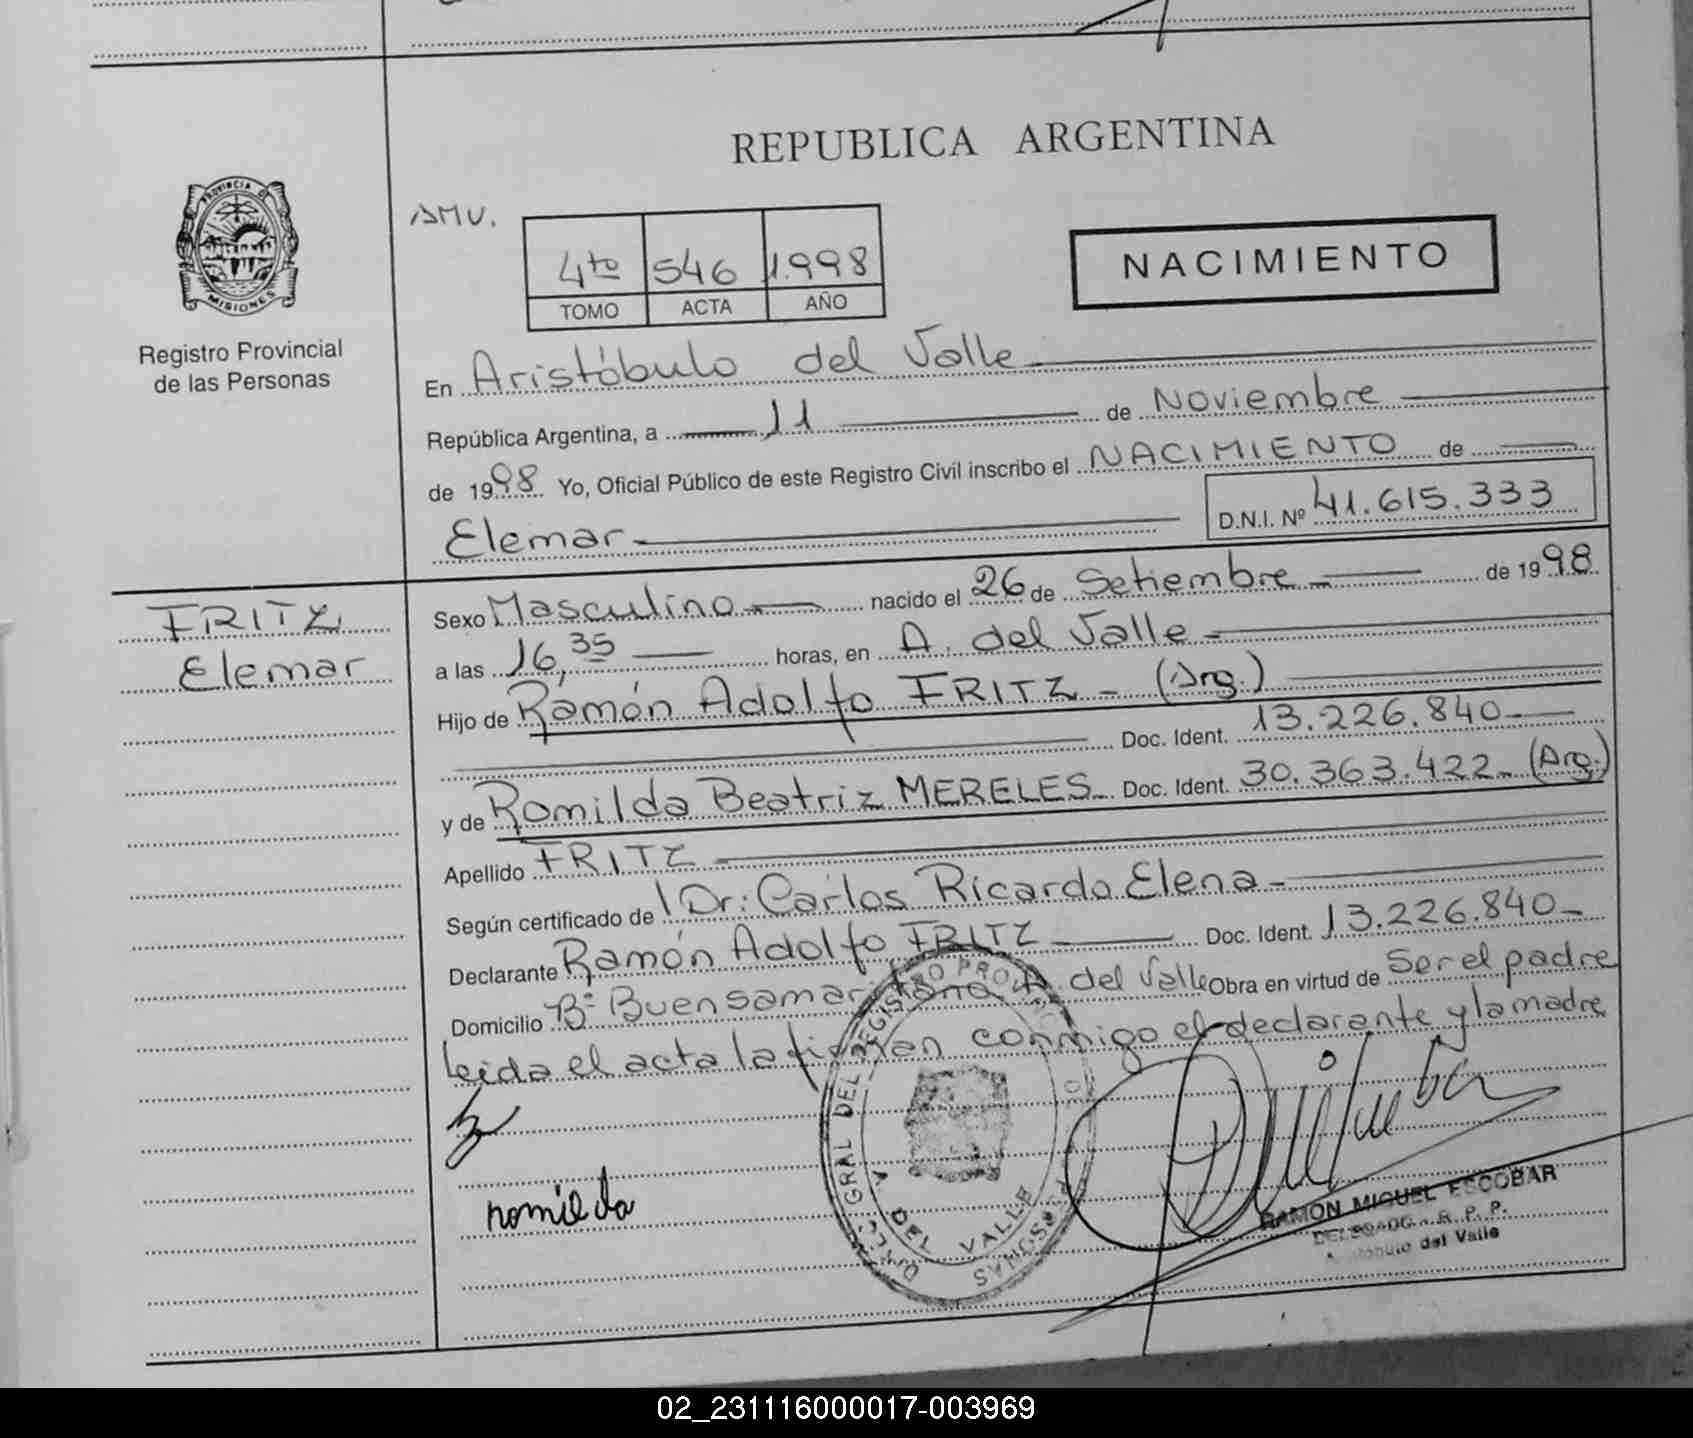 REPUBLICA ARGENTINA
PROVINCIA DE MISIONES
Registro Provincial
de las Personas
AMV.
4to 546 1.998
TOMO ACTA AÑO
NACIMIENTO
En Aristóbulo del Valle
República Argentina, a 11 de Noviembre
de 1998 Yo, Oficial Público de este Registro Civil inscribo el NACIMIENTO de
Elemar D.N.I. Nº 41.615.333
FRITZ
Elemar
Sexo Masculino nacido el 26 de Setiembre de 1998
a las 16,35 horas, en A. del Valle
Hijo de Ramón Adolfo FRITZ - (Arg.)
Doc. Ident. 13.226.840
y de Romilda Beatriz MERELES Doc. Ident. 30.363.422 (Arg.)
Apellido FRITZ
Según certificado de Dr: Carlos Ricardo Elena
Declarante Ramón Adolfo FRITZ Doc. Ident. 13.226.840
Domicilio Bº Buen samaritano A. del Valle Obra en virtud de Ser el padre
Leida el acta la firman conmigo el declarante y la madre
romilda
DIREC. GRAL DEL REGISTRO PROVINCIAL DE PERSONAS
A. DEL VALLE
RAMON MIGUEL ESCOBAR
DELEGADO R. P. P.
Aristóbulo del Valle
02_231116000017-003969